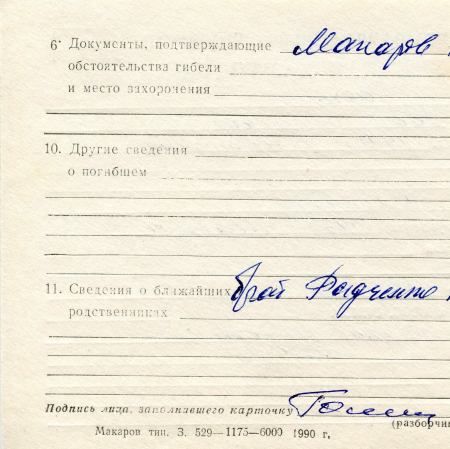 6· Документы, подтверждающие Макаров
обстоятельства гибели
и место захоронения
10. Другие сведения
о погибшем
11. Сведения о ближайших брат Радченко
родственниках
Подпись лица, заполнившего карточку
(разборчи
Макаров тип. З. 529—1175—6000 1990 г.